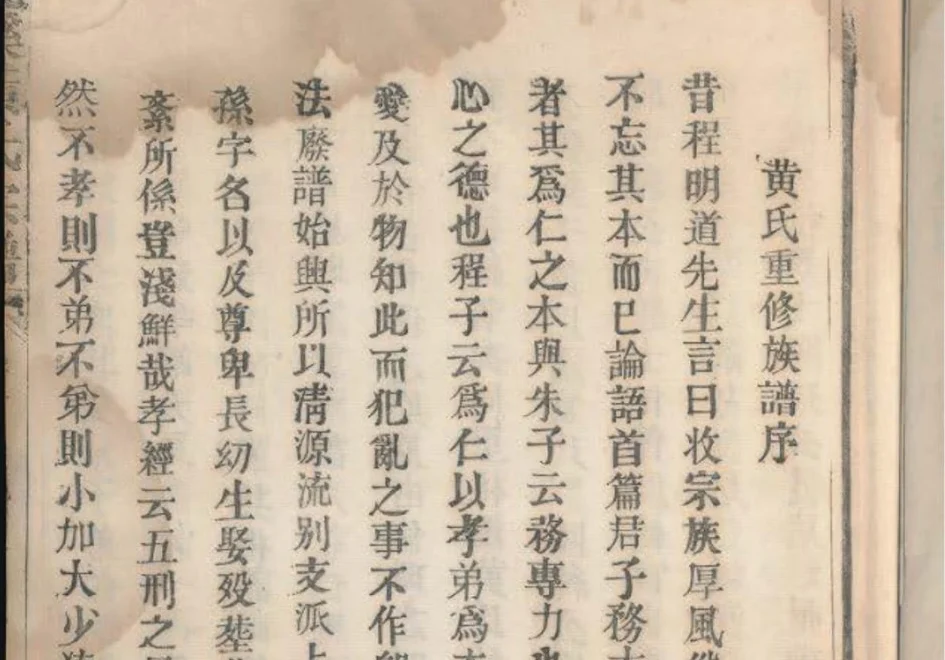 黄氏重修族譜序
昔程明道先生言曰收宗族厚風
不忘其本而已論語首篇君子務
者其爲仁之本與朱子云務專力
心之德也程子云爲仁以孝弟爲
愛及於物知此而犯亂之事不作
法廢譜始興所以清源流别支派
孫字名以及尊卑長幼生娶殁塟
紊所係豈淺鮮哉孝經云五刑之
然不孝則不弟不弟則小加大少